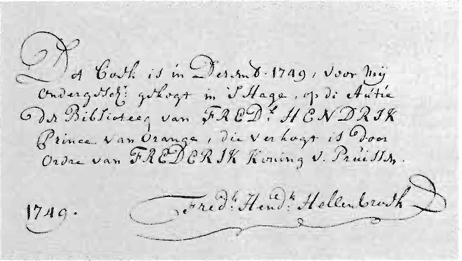 Det Boek is in Decemb. 1749, voor mij
ondergesch: gekogt in 's Hage, op de Autie
der Biblioteeq van FREDk. HENDRIK
Prince van Orange, die verkogt is door
ordre van FREDERIK Koning v. Pruissen.
Fredk. Hendk. Hellenbroek
1749.